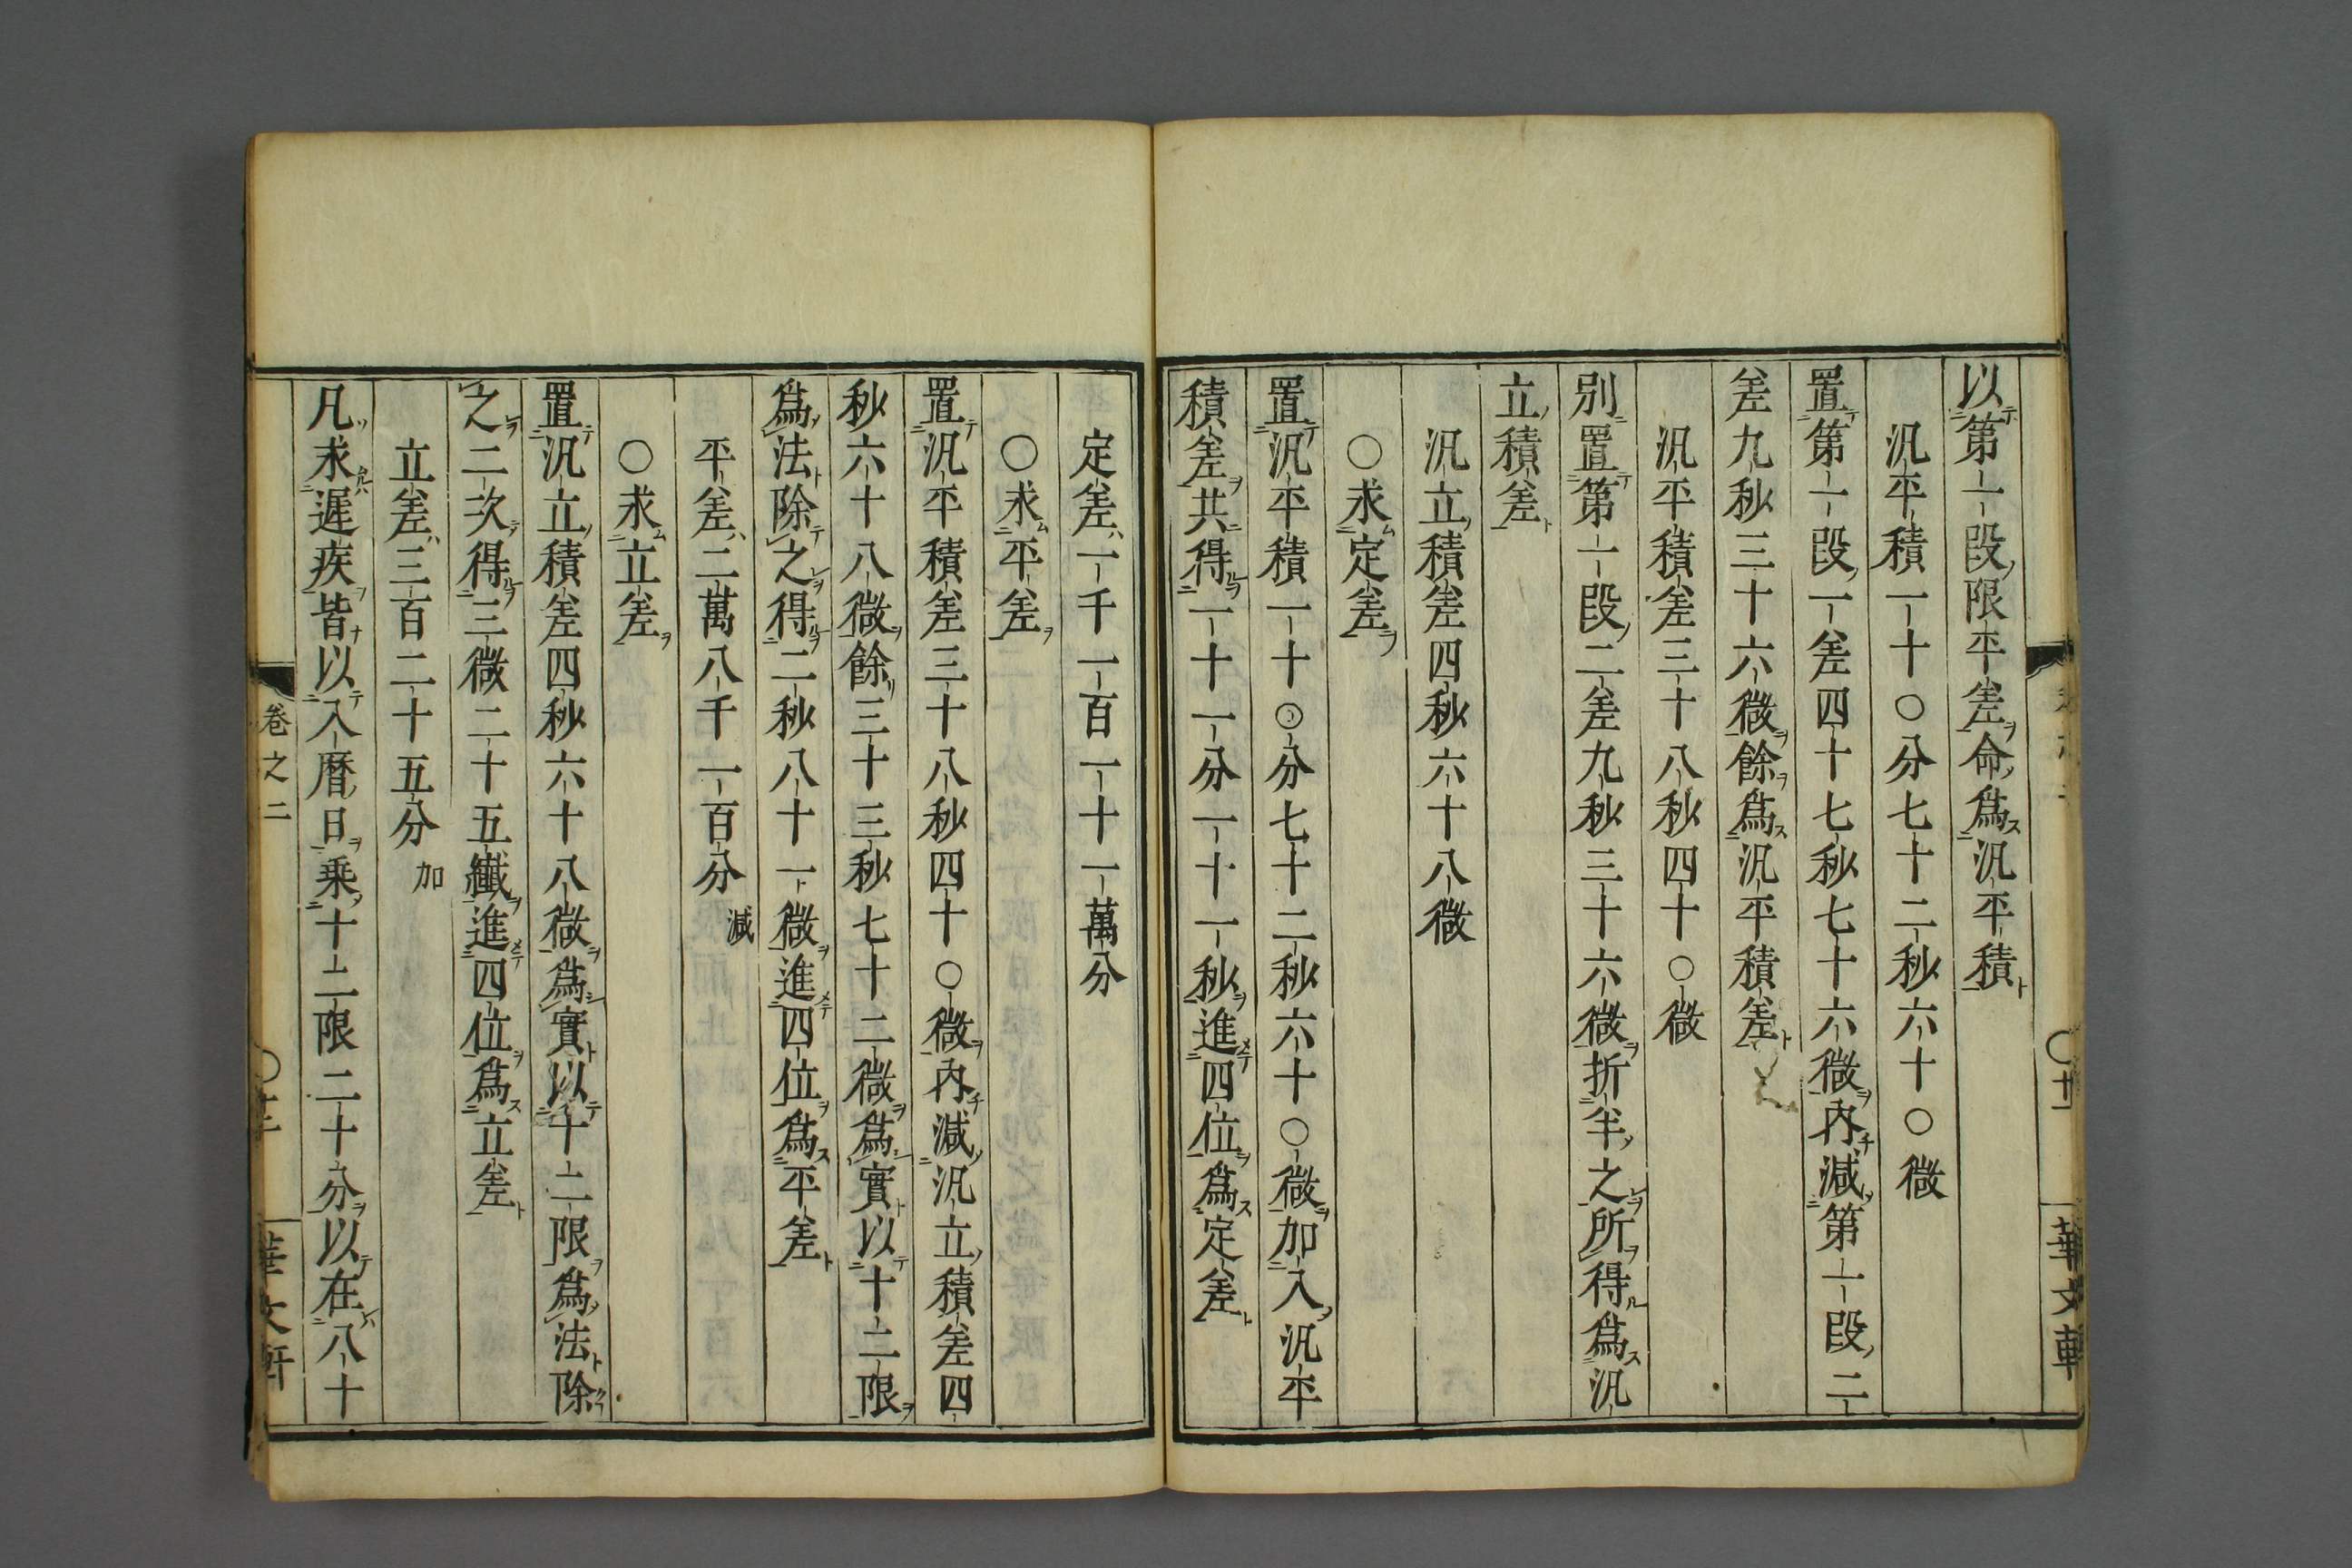 以第一段限平差命爲汎平積
汎平積一十〇分七十二秒六十〇微
置第一段一差四十七秒七十六微内減第一段二
差九秒三十六微餘爲汎平積差
汎平積差三十八秒四十〇微
別置第一段二差九秒三十六微折半之所得爲汎
立積差
汎立積差四秒六十八微
〇求定差
置汎平積一十〇分七十二秒六十〇微加入汎平
積差共得一十一分一十一秒進四位爲定差
定差一千一百一十一萬分
〇求平差
置汎平積差三十八秒四十〇微内減汎立積差四
秒六十八微餘三十三秒七十二微爲實以十二限
爲法除之得二秒八十一微進四位爲平差
平差二萬八千一百分減
〇求立差
置汎立積差四秒六十八微爲實以十二限爲法除
之二次得三微二十五纖進四位爲立差
立差三百二十五分加
凡求遲疾皆以入暦日乗十二限二十分以在八十
卷之二
華文軒